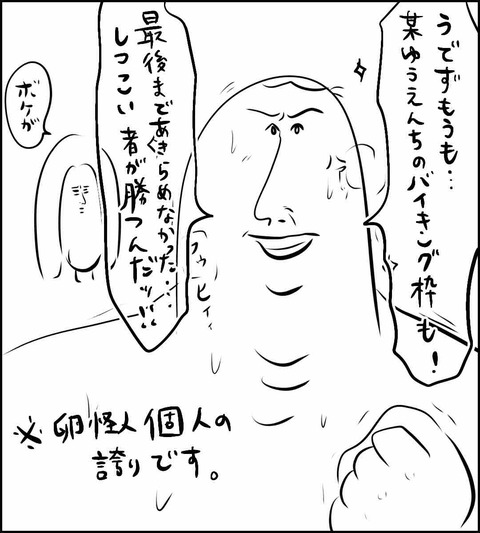 うでずもうも…
某ゆうえんちのバイキング枠も!
最後まであきらめなかった…
しつこい者が勝つんだッ!!
ボケが
フゥ
ヒィ
※卵怪人個人の
誇りです。